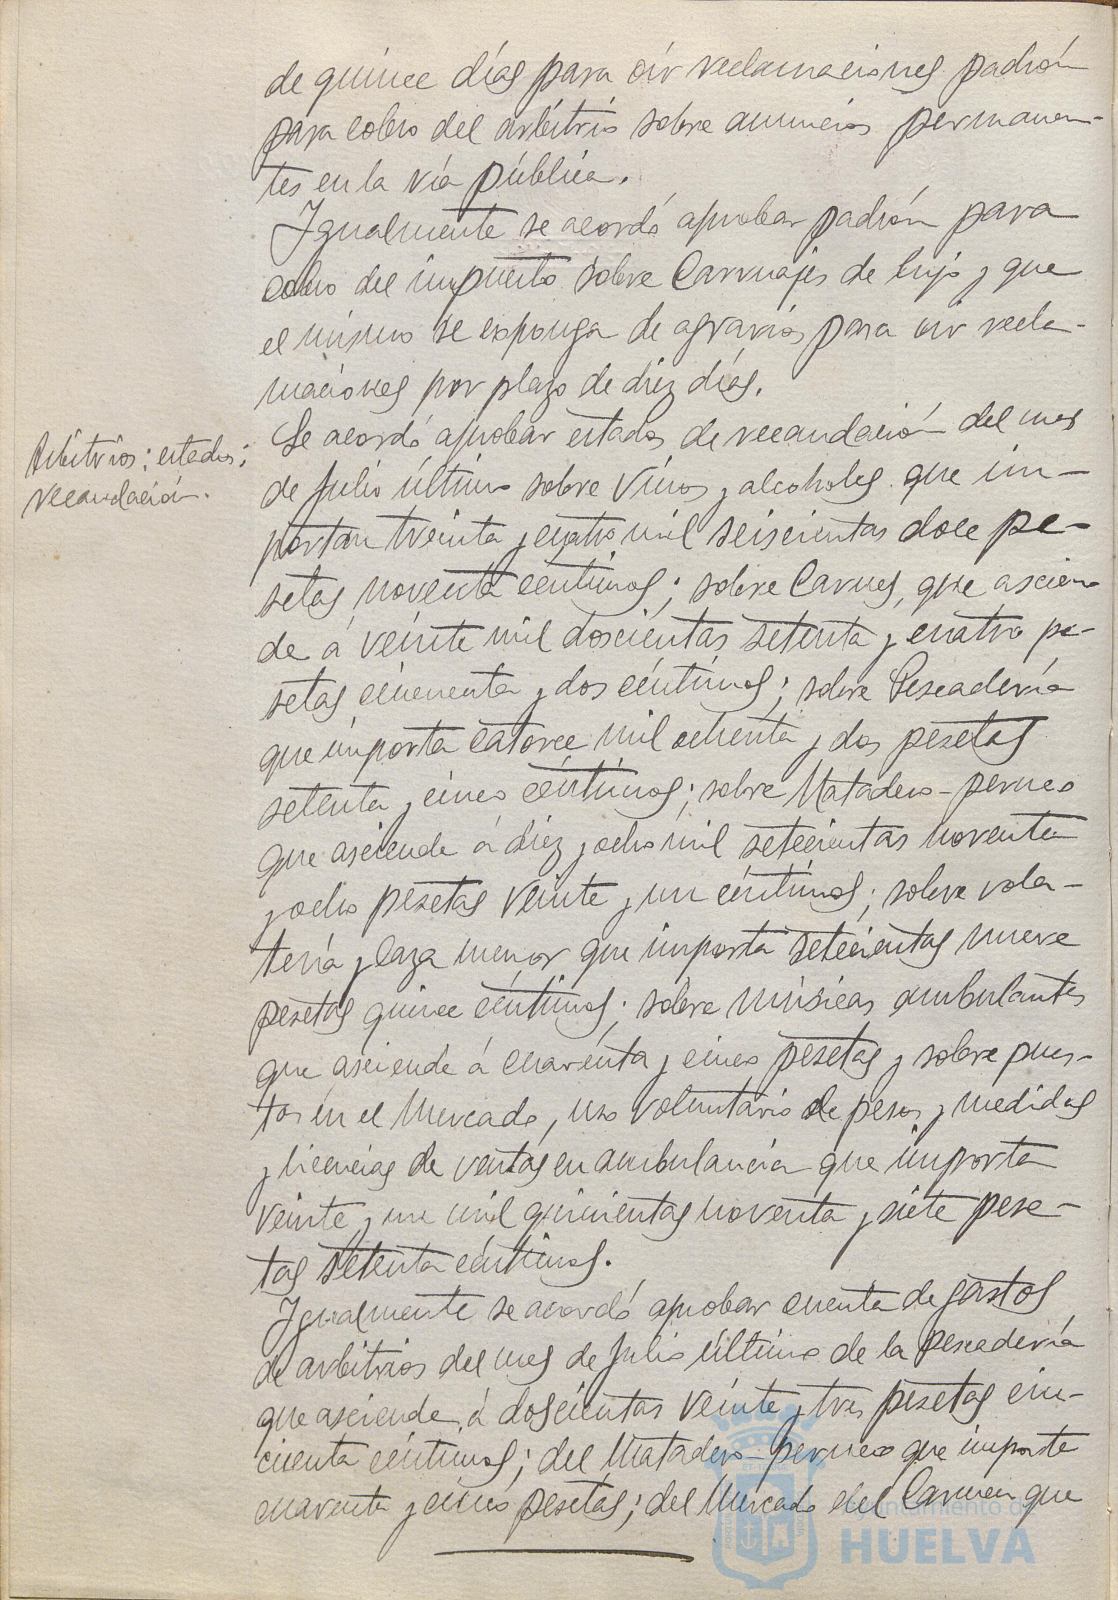 de quince días para oir reclamaciones padrón
para cobro del arbitrio sobre anuncios permanen-
tes en la vía pública.
Igualmente se acordó aprobar padrón para
cobro del impuesto sobre Carruajes de lujo y que
el mismo se exponga de agravios para oir recla-
maciones por plazo de diez días.
Arbitrios: estados;
recaudación.
Se acordó aprobar estados de recaudación del mes
de Julio último sobre Vinos y alcoholes que im-
portan treinta y cuatro mil seiscientas doce pe-
setas noventa céntimos; sobre Carnes, que ascien-
de á veinte mil doscientas setenta y cuatro pe-
setas cincuenta y dos céntimos; sobre Pescadería
que importa catorce mil ochenta y dos pesetas
setenta y cinco céntimos; sobre Matadero-perneo
que asciende á diez y ocho mil setecientas noventa
y ocho pesetas veinte y un céntimos; sobre vola-
tería y caza menor que importa setecientas nueve
pesetas quince céntimos; sobre músicas ambulantes
que asciende á cuarenta y cinco pesetas y sobre pues-
tos en el Mercado, uso voluntario de pesos y medidas
y licencias de ventas en ambulancia que importa
veinte y un mil quinientas noventa y siete pese-
tas setenta céntimos.
Igualmente se acordó aprobar cuenta de gastos
de arbitrios del mes de Julio último de la pescadería
que asciende á doscientas veinte y tres pesetas cin-
cuenta céntimos; del Matadero-perneo que importa
cuarenta y cinco pesetas; del Mercado del Carmen que
Ayuntamiento de
HUELVA